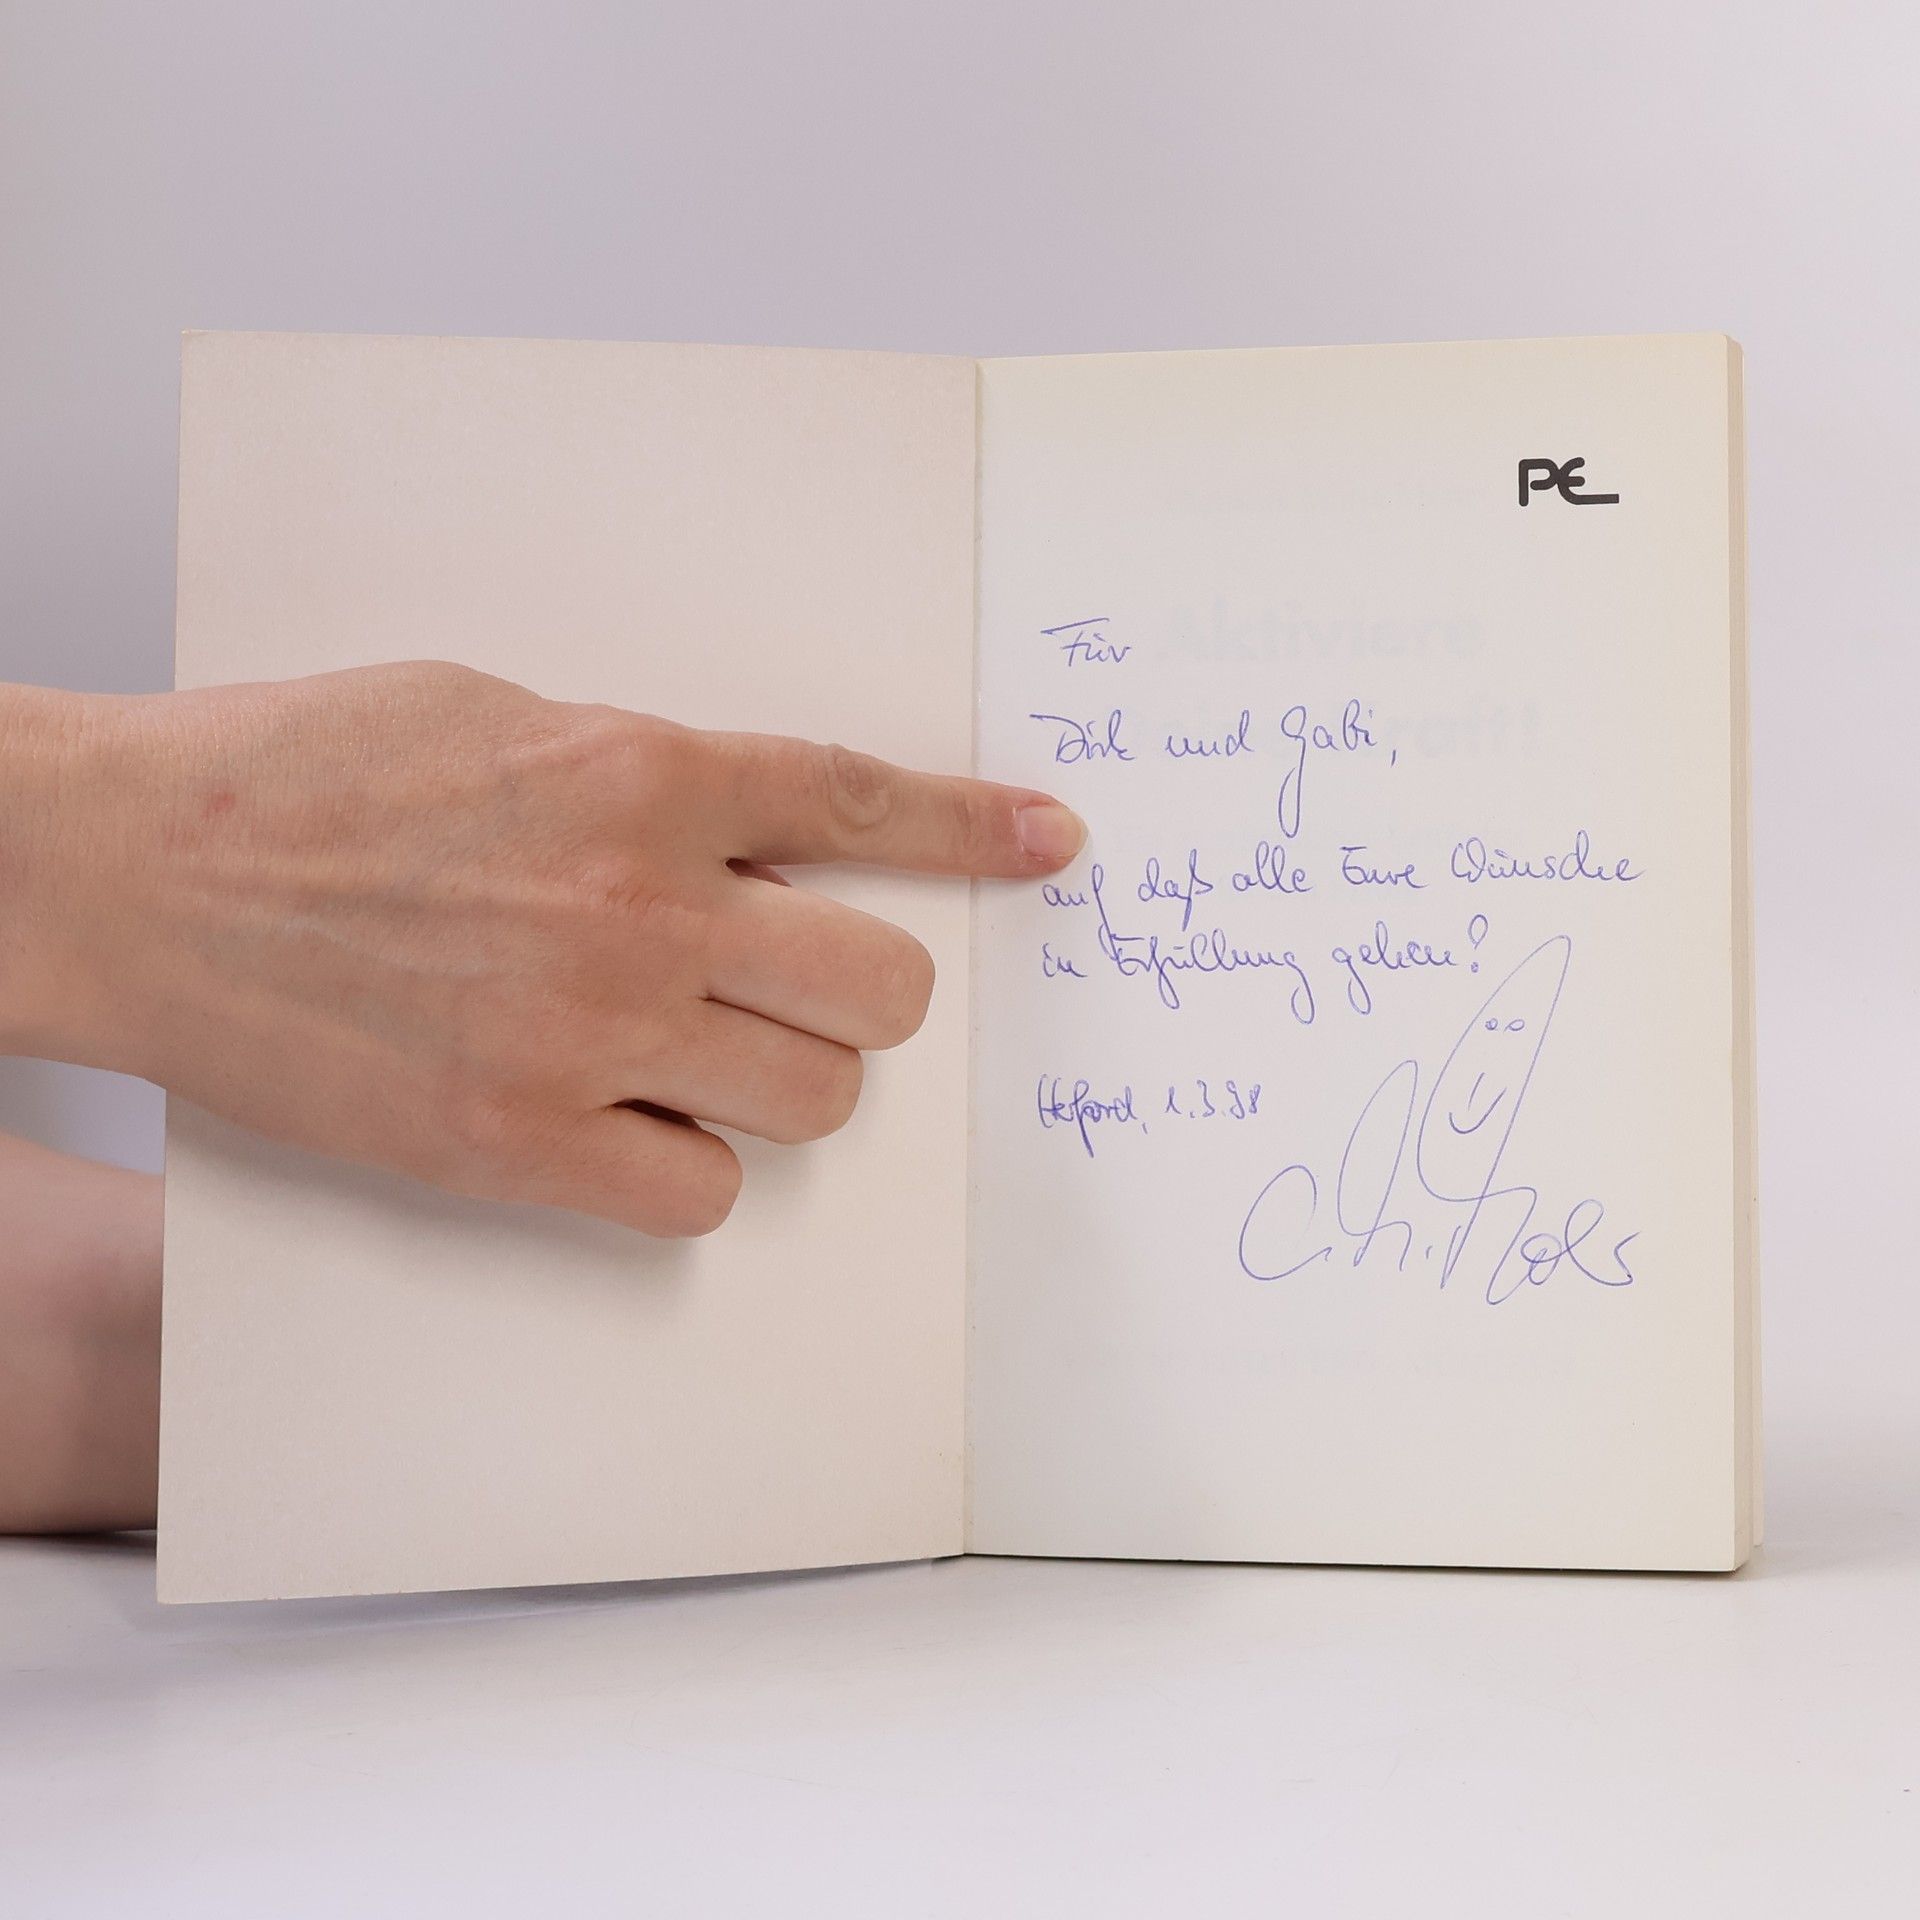 PE
Für
Dirk und Gabi,
auf daß alle Eure Wünsche
in Erfüllung gehen!
Herford, 1.3.98